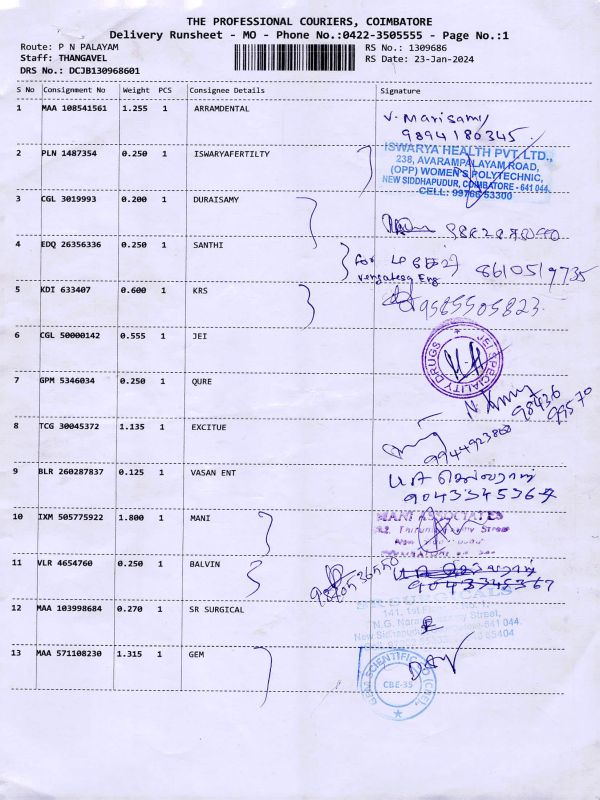 THE PROFESSIONAL COURIERS, COIMBATORE
Delivery Runsheet - MO - Phone No.:0422-3505555 - Page No.:1
Route: P N PALAYAM RS No.: 1309686
Staff: THANGAVEL RS Date: 23-Jan-2024
DRS No.: DCJB130968601
S No Consignment No Weight PCS Consignee Details Signature
1 MAA 108541561 1.255 1 ARRAMDENTAL
V. Marisamy
9894180345
2 PLN 1487354 0.250 1 ISWARYAFERTILTY
ISWARYA HEALTH PVT. LTD.,
238, AVARAMPALAYAM ROAD,
(OPP) WOMEN'S POLYTECHNIC,
NEW SIDDHAPUDUR, COIMBATORE - 641 044.
CELL: 99766 53300
3 CGL 3019993 0.200 1 DURAISAMY
4 EDQ 26356336 0.250 1 SANTHI
for
8610519735
5 KDI 633407 0.600 1 KRS
9585505823
6 CGL 50000142 0.555 1 JEI
JEI SPECIALITY DRUGS
7 GPM 5346034 0.250 1 QURE
98436
99570
8 TCG 30045372 1.135 1 EXCITUE
9944923868
9 BLR 260287837 0.125 1 VASAN ENT
9043345367
10 IXM 505775922 1.800 1 MANI
MANI ASSOCIATES
11 VLR 4654760 0.250 1 BALVIN
9043345367
12 MAA 103998684 0.270 1 SR SURGICAL
141, 1st
N.G. Street,
New Siddhapudur 641 044.
85404
13 MAA 571108230 1.315 1 GEM
GEM SCIENTIFIC (CBE),
CBE-35